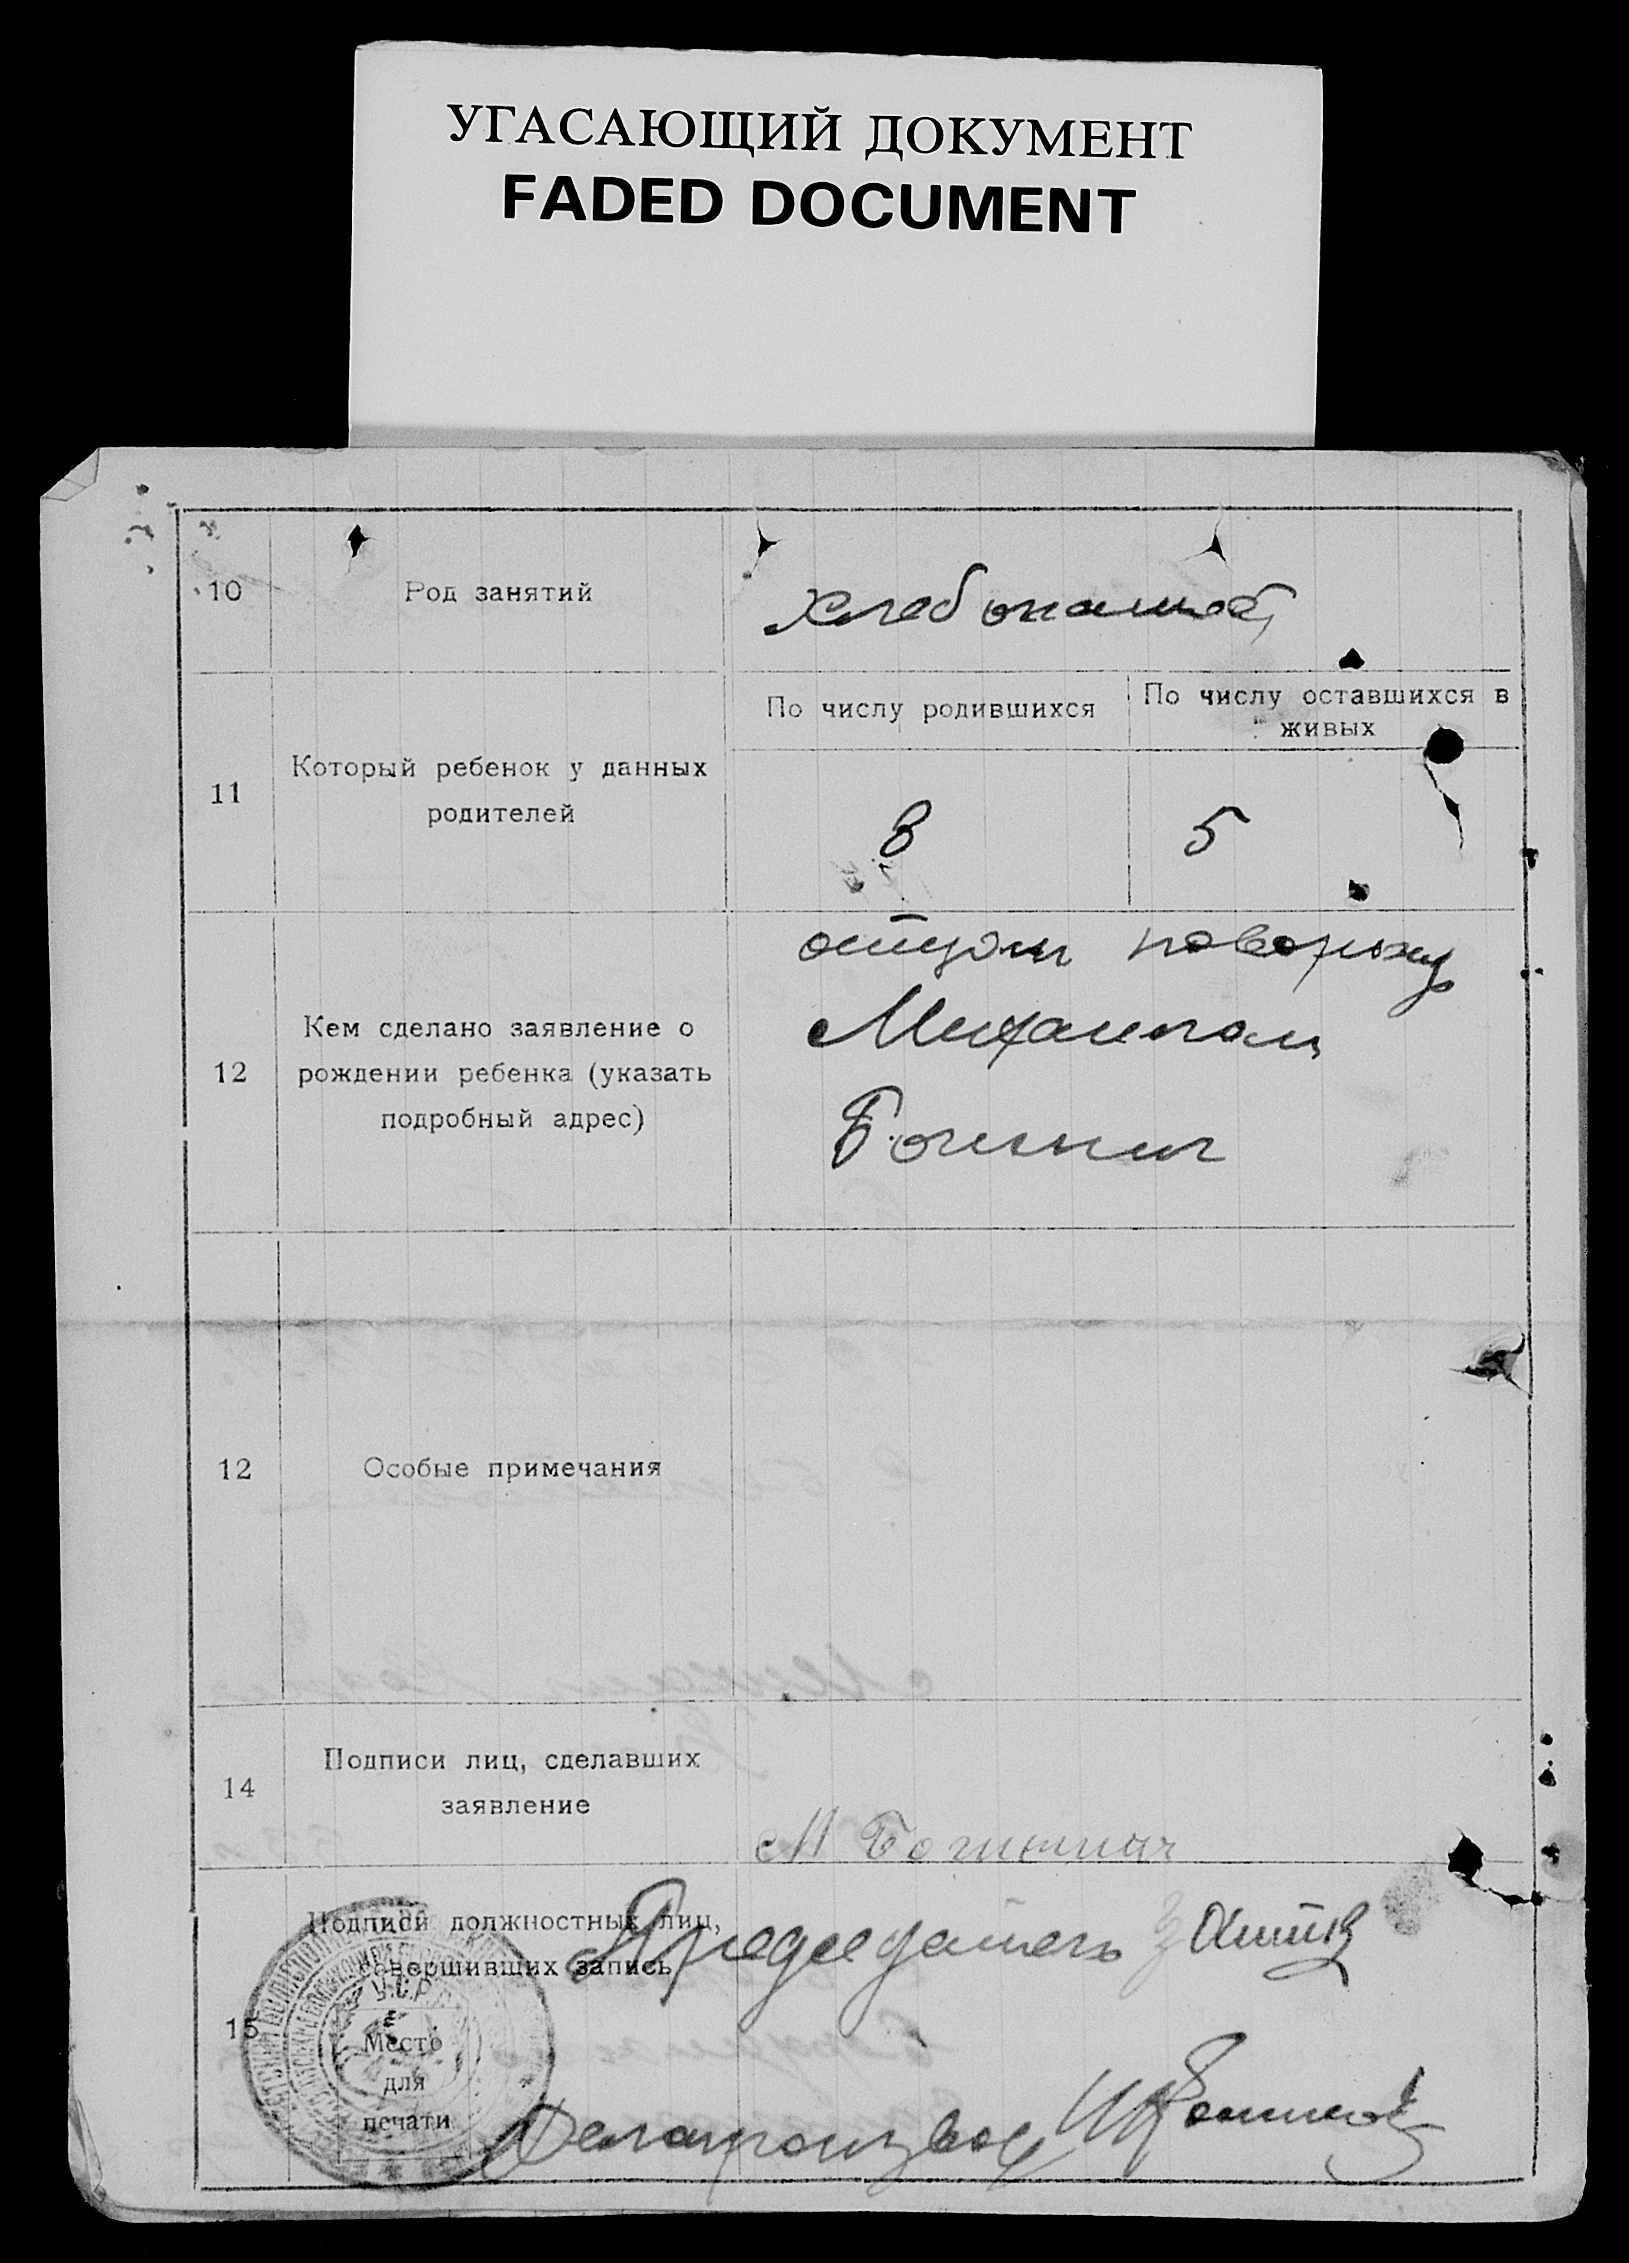 УГАСАЮЩИЙ ДОКУМЕНТ
FADED DOCUMENT
10
Род занятий
хлебопашец
11
Который ребенок у данных
родителей
По числу родившихся
По числу оставшихся в
живых
8
5
12
Кем сделано заявление о
рождении ребенка (указать
подробный адрес)
отцом
Михаилом
12
Особые примечания
14
Подписи лиц, сделавших
заявление
М
15
Подписи должностных лиц,
совершивших запись
Место
для
печати
У.С.Р.
Председатель
Делопроизвод